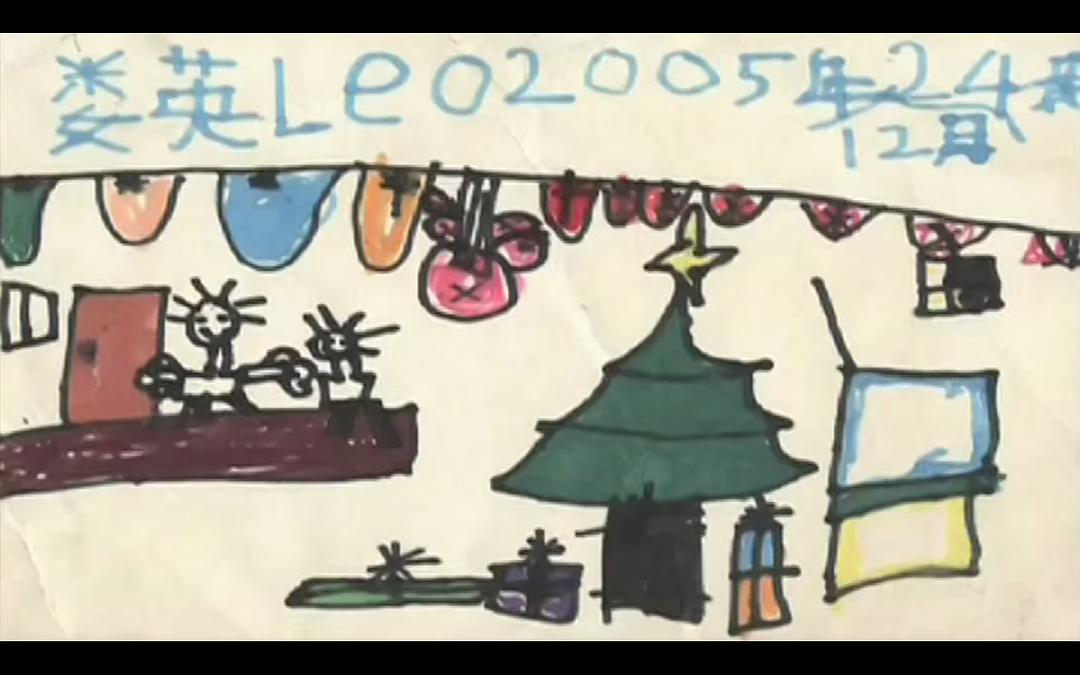 娄英Leo2005年24
12月